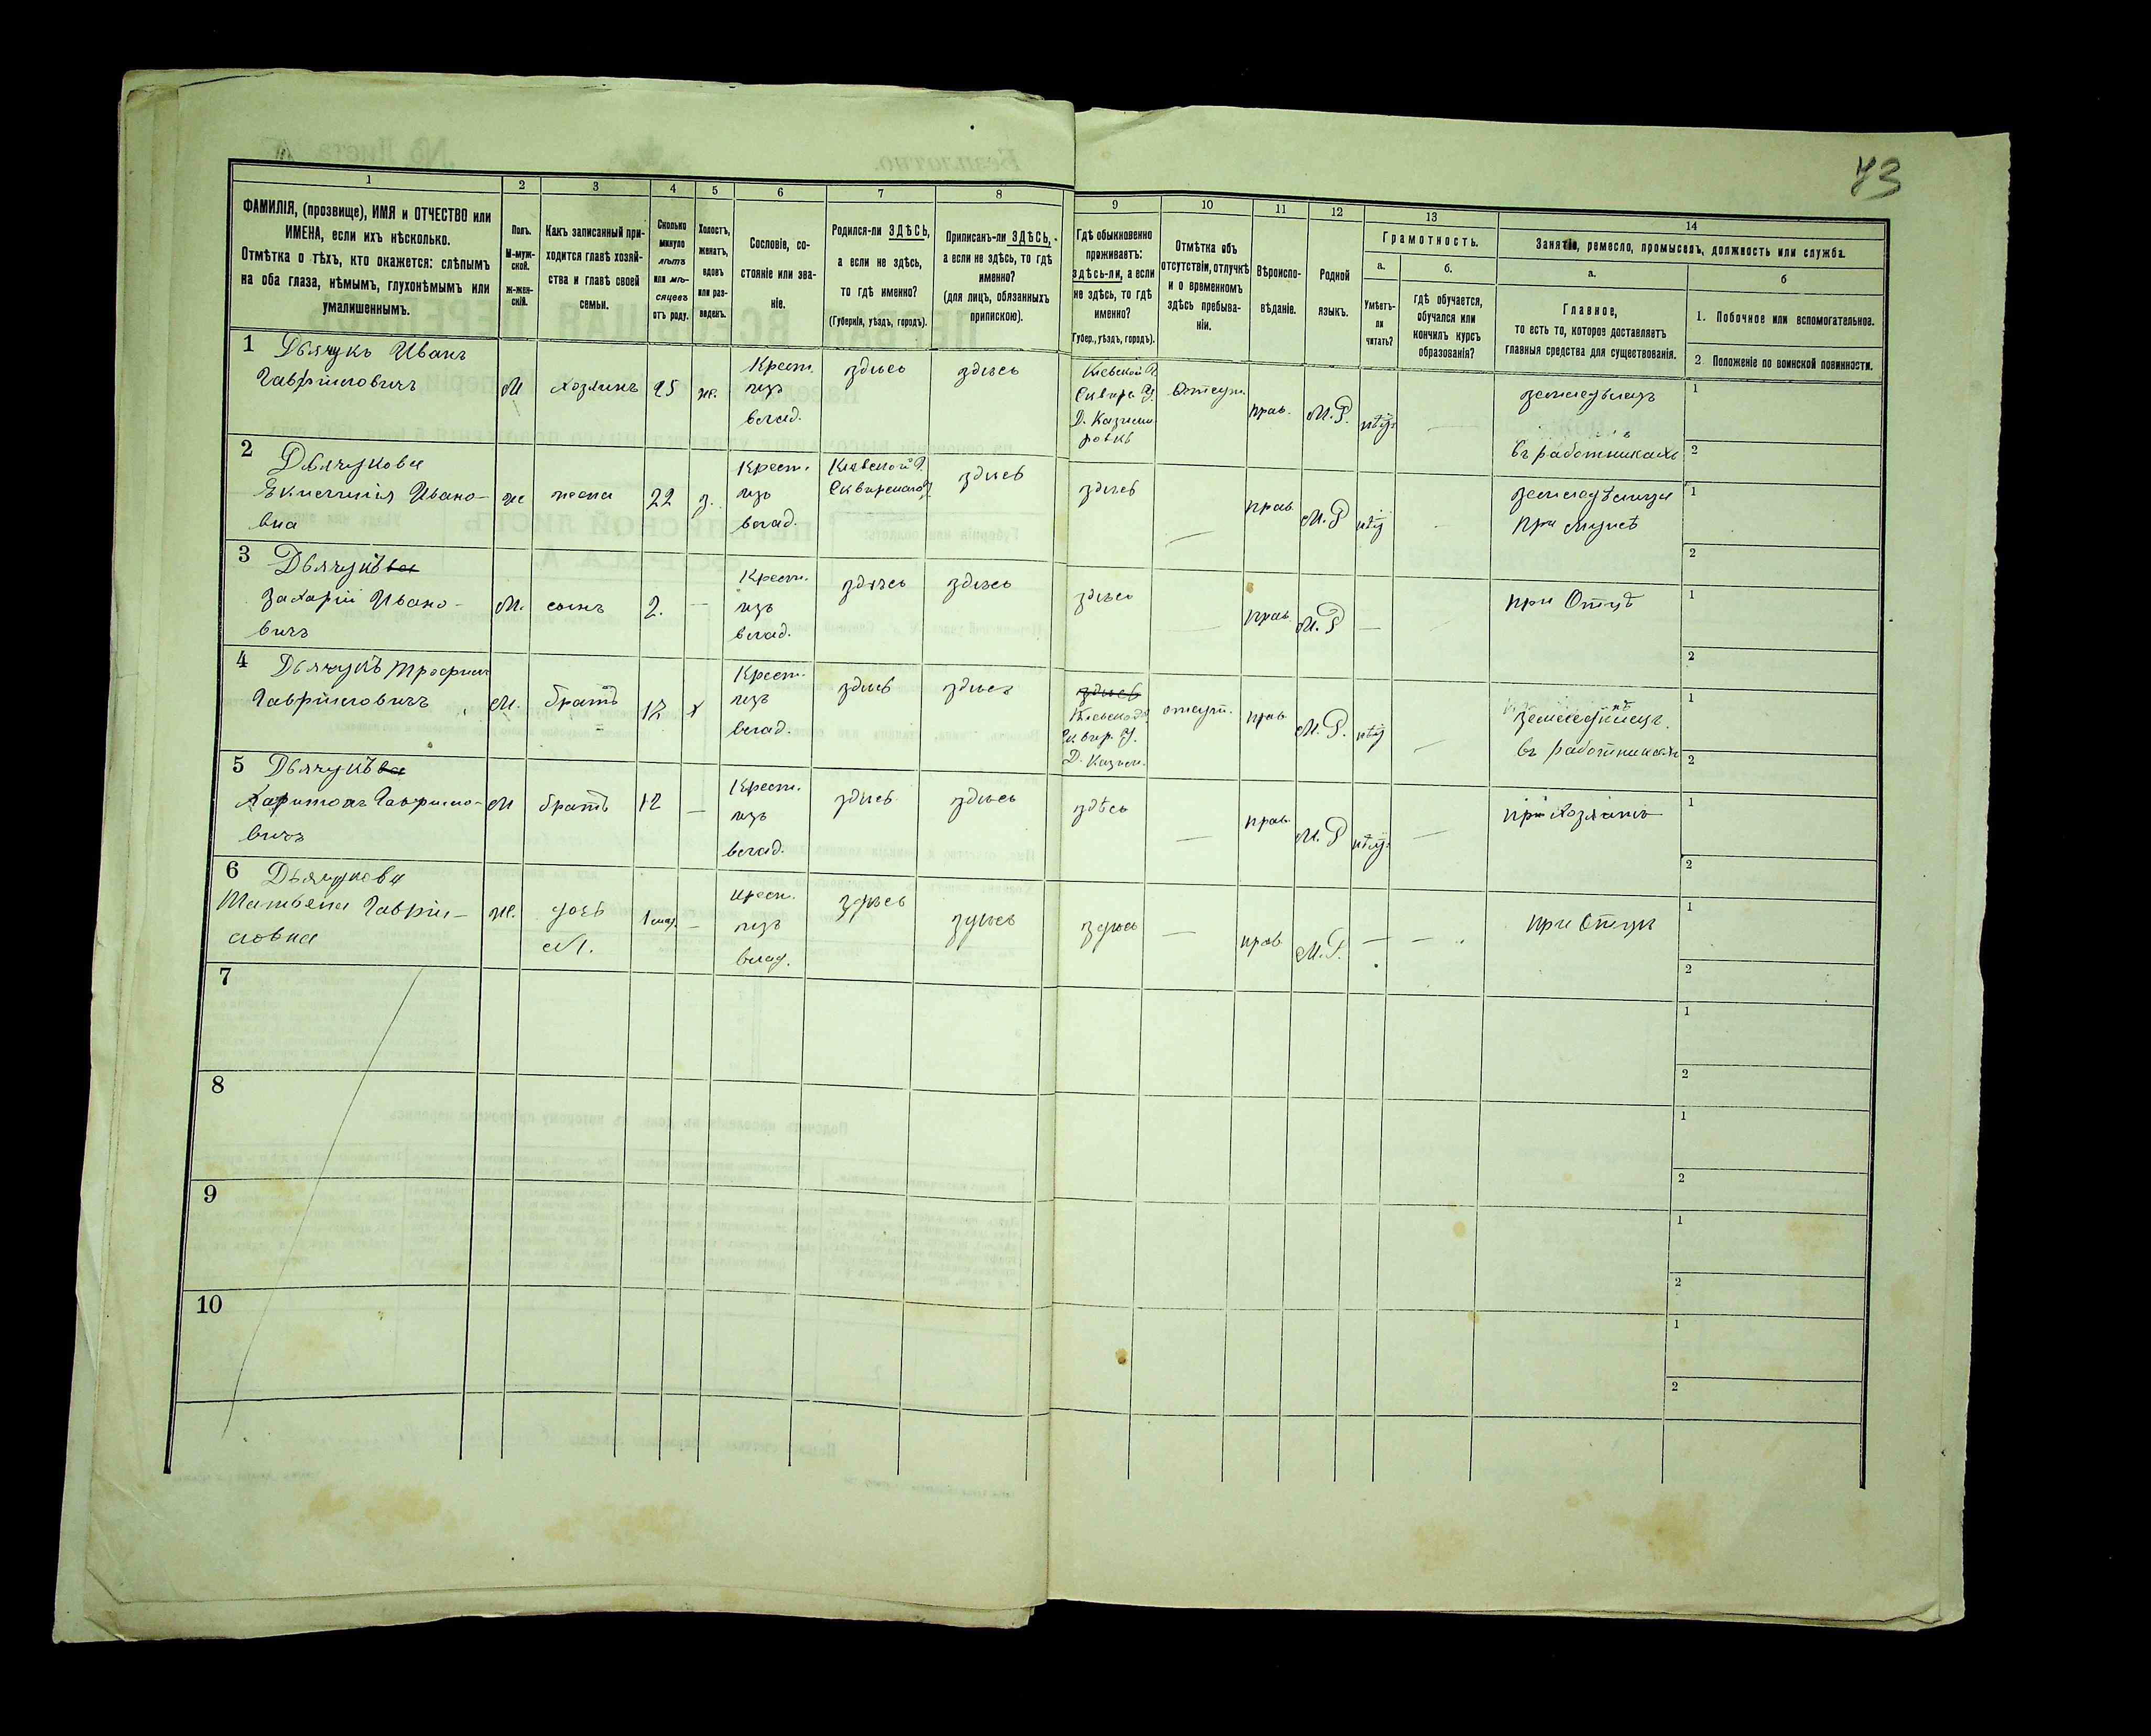 73
1
2
3
4
5
6
7
8
9
10
11
12
13
14
ФАМИЛІЯ, (прозвище), ИМЯ и ОТЧЕСТВО или
ИМЕНА, если ихъ нѣсколько.
Отмѣтка о тѣхъ, кто окажется: слѣпымъ
на оба глаза, нѣмымъ, глухонѣмымъ или
умалишеннымъ.
Полъ.
М-муж-
ской.
ж-жен-
скій.
Какъ записанный при-
ходится главѣ хозяй-
ства и главѣ своей
семьи.
Сколько
минуло
лѣтъ
или мѣ-
сяцевъ
отъ роду.
Холостъ,
женатъ,
вдовъ
или раз-
веденъ.
Сословіе, со-
стояніе или зва-
ніе.
Родился-ли ЗДѢСЬ,
а если не здѣсь,
то гдѣ именно?
(Губернія, уѣздъ, городъ).
Приписанъ-ли ЗДѢСЬ,
а если не здѣсь, то гдѣ
именно?
(для лицъ, обязанныхъ
припискою).
Гдѣ обыкновенно
проживаетъ:
здѣсь-ли, а если
не здѣсь, то гдѣ
именно?
Губер., уѣздъ, городъ).
Отмѣтка объ
отсутствіи, отлучкѣ
и о временномъ
здѣсь пребыва-
ніи.
Вѣроиспо-
вѣданіе.
Родной
языкъ.
Грамотность.
а.
Умѣетъ-
ли
читать?
б.
гдѣ обучается,
обучался или
кончилъ курсъ
образованія?
Занятіе, ремесло, промыселъ, должность или служба.
а.
Главное,
то есть то, которое доставляетъ
главныя средства для существованія.
б
1. Побочное или вспомогательное.
2. Положеніе по воинской повинности.
1 Дьячукъ Иванъ
Гавріиловичъ
М
хозяинъ
25
же.
Крест.
изъ
влад.
здѣсь
здѣсь
Кіевской Г.
Сквир. У.
Д. Казими
ровкѣ
Отсут.
прав.
М.Р.
нѣтъ
земледѣлецъ
въ работникахъ
1
2
2 Дьячукова
Ивано-
вна
же
жена
22
з.
Крест.
изъ
влад.
Кіевской Г.
Сквирскаго У.
здѣсь
здѣсь
прав
М.Р
нѣтъ
земледѣлица
при мужѣ
1
2
3 Дьячукъ
Захарій Ивано-
вичъ
М.
сынъ
2.
Крест.
изъ
влад.
здѣсь
здѣсь
здѣсь
прав
М.Р
при Отцѣ
1
2
4 Дьячукъ Трофим
Гавріиловичъ
М.
братъ
х
Крест.
изъ
влад.
здѣсь
здѣсь
здѣсь
Кіевской Г.
Сквир. У.
Д. Казим.
отсут.
прав
М.Р.
нѣтъ
земледѣлецъ.
въ работникахъ
1
2
5 Дьячукъ
Харитонъ Гавріило-
вичъ
М
братъ
12
Крест.
изъ
влад.
здѣсь
здѣсь
здѣсь
прав
М.Р
нѣтъ
при Хозяинѣ
1
2
6 Дьячукова
Татьяна Гаврііі-
ловна
же.
дочь
М.
Крест.
изъ
влад.
здѣсь
здѣсь
здѣсь
прав
М.Р.
при Отцѣ
1
2
7
1
2
8
1
2
9
1
2
10
1
2